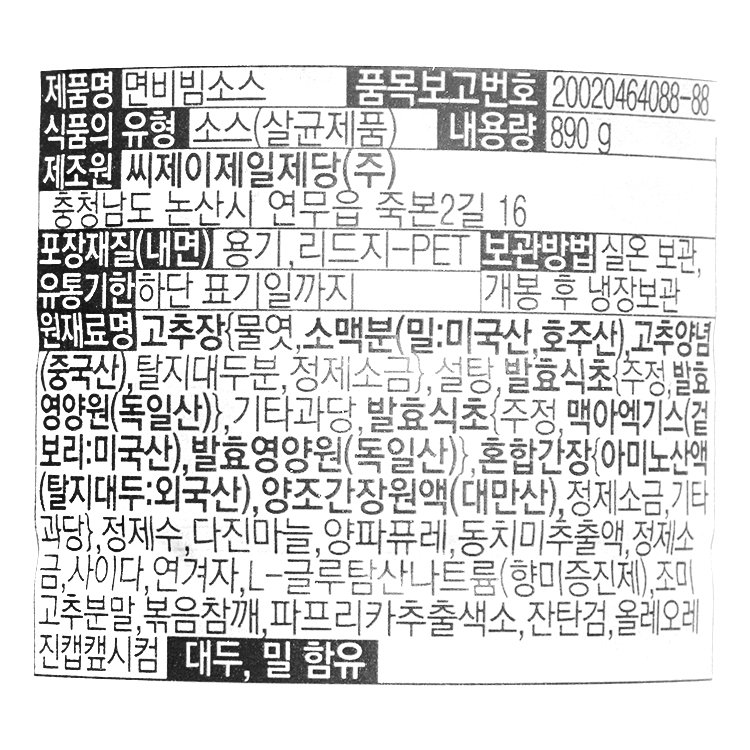 제품명 면비빔소스 품목보고번호 20020464088-88
식품의 유형 소스(살균제품) 내용량 890 g
제조원 씨제이제일제당(주)
충청남도 논산시 연무읍 죽본2길 16
포장재질(내면) 용기,리드지-PET 보관방법 실온 보관,
유통기한 하단 표기일까지 개봉 후 냉장보관
원재료명 고추장{물엿,소맥분(밀:미국산,호주산),고추양념
(중국산),탈지대두분,정제소금},설탕,발효식초{주정,발효
영양원(독일산)},기타과당,발효식초{주정,맥아엑기스(겉
보리:미국산),발효영양원(독일산)},혼합간장{아미노산액
(탈지대두:외국산),양조간장원액(대만산),정제소금,기타
과당},정제수,다진마늘,양파퓨레,동치미추출액,정제소
금,사이다,연겨자,L-글루탐산나트륨(향미증진제),조미
고추분말,볶음참깨,파프리카추출색소,잔탄검,올레오레
진캡캪시컴 대두, 밀 함유